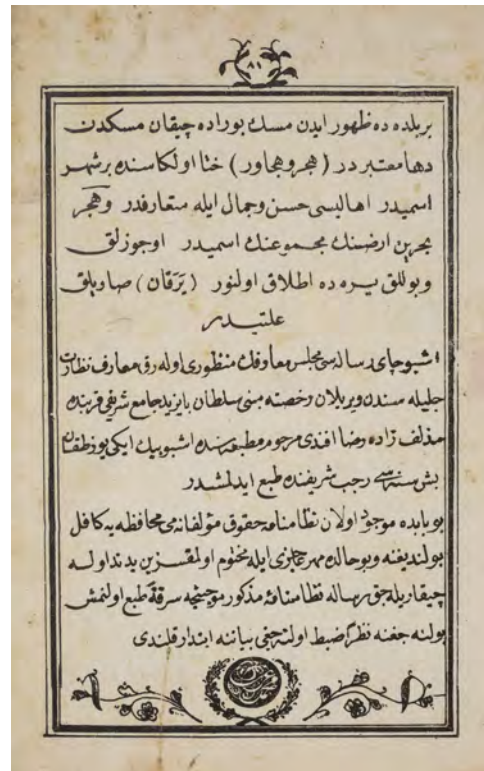 ٨١
بر بلده ده ظهور ايدن مسك بوراده چيقان مسكدن
دها معتبر در ( هجر وهجاور ) ختا اولكاسنده بر شهر
اسميدر اهاليسى حسن وجمال ايله متعارفدر وهجر
بحرين ارضنك مجموعنك اسميدر اوجوزلق
وبوللق يره ده اطلاق اولنور ( يَرَقان ) صاريلق
علتيدر
اشبو چاى رساله سى مجلس معارفك منظورى اوله رق معارف نظارت
جليله سندن ويريلان رخصته مبنى سلطان بايزيد جامع شريفى قربنده
مذلف زاده رضا افندى مرحوم مطبعه سنده اشبو بيك ايكى يوز طقسان
بش سنه سى رجب شريفنده طبع ايدلمشدر
بو بابده موجود اولان نظامنامه حقوق مؤلفانه مى محافظه يه كافل
بولنديغنه وبو حالده مهر عاجزى ايله مختوم اولمقسزين يدتداوله
چيقاريله جق رساله نظامنامهٔ مذكور موجبنجه سرقةً طبع اولنمش
بولنه جغنه نظراً ضبط اولنه جغى بياننه ابتدار قلندى